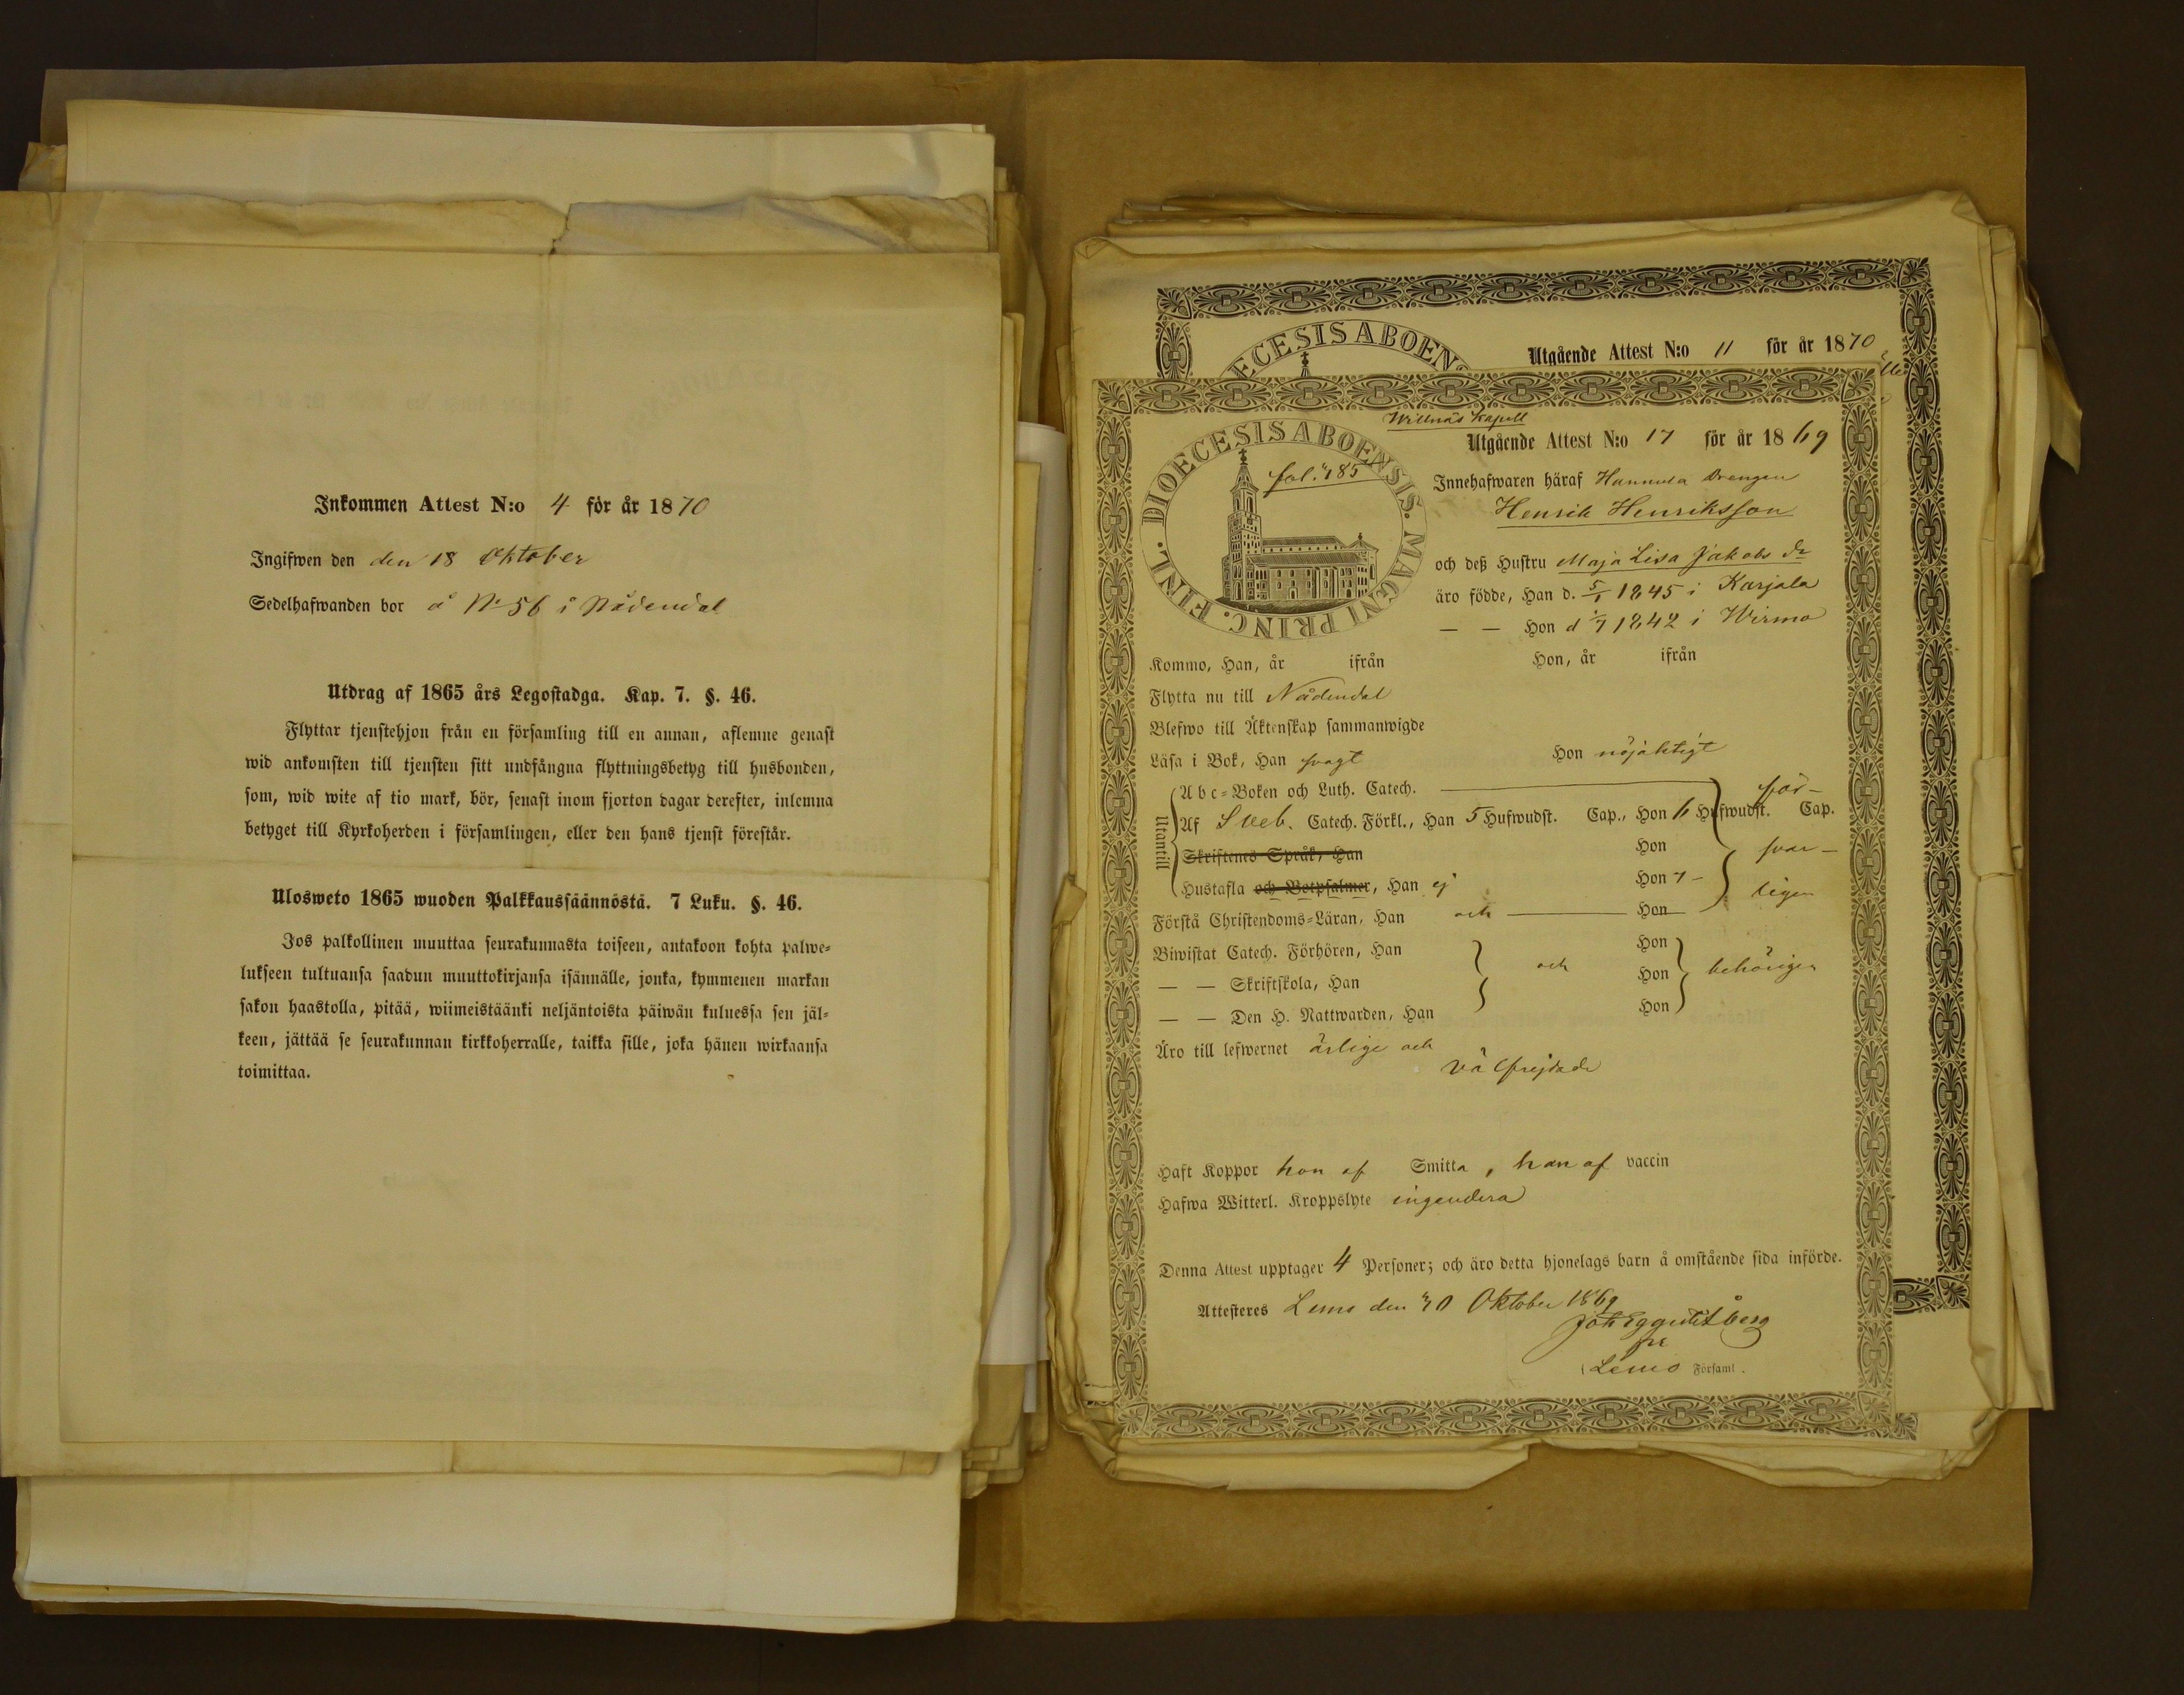 Inkommen Attest N:o 4 för år 1870
Ingifwen den den 18 Oktober
Sedelhafwanden bor å No 56 i Nådendal
Utdrag af 1865 års Legostadga. Kap. 7. §. 46.
Flyttar tjenstehjon från en församling till en annan, aflemne genast
wid ankomsten till tjensten sitt undfångna flyttningsbetyg till husbonden,
som, wid wite af tio mark, bör, senast inom fjorton dagar derefter, inlemna
betyget till Kyrkoherden i församlingen, eller den hans tjenst förestår.
Ulosweto 1865 wuoden Palkkaussäännöstä. 7 Luku. §. 46.
Jos palkollinen muuttaa seurakunnasta toiseen, antakoon kohta palwe-
lukseen tultuansa saadun muuttokirjansa isännälle, jonka, kymmenen markan
sakon haastolla, pitää, wiimeistäänki neljäntoista päiwän kuluessa sen jäl-
keen, jättää se seurakunnan kirkkoherralle, taikka sille, joka hänen wirkaansa
toimittaa.
ECESIS ABOEN
Utgående Attest N:o 11 för år 1870
Willnäs Kapell
DIOECESIS ABOENSIS. MAGNI PRINC. FINL.
fol. 185
Utgående Attest N:o 17 för år 1869
Innehafwaren häraf Hannula Drengen
Henrik Henriksson
och deß Hustru Maja Lisa Jakobs dr
äro födde, Han d. 5/1 1845 i Karjala
— — Hon d 1/7 1842 i Wirmo
Kommo, Han, år ifrån Hon, år ifrån
Flytta nu till Nådendal
Blefwo till Äktenskap sammanwigde
Läsa i Bok, Han svagt Hon nöjaktigt
Utantill
Abc-Boken och Luth. Catech. för-
Af Sveb. Catech. Förkl., Han 5 Hufwudst. Cap., Hon 6 Hufwudst. Cap.
Skriftenes Språk, Han Hon svar-
Hustafla och Botpsalmer, Han ej Hon - ligen
Förstå Christendoms-Läran, Han och Hon
Biwistat Catech. Förhören, Han Hon
— — Skriftskola, Han och Hon behörigen
— — Den H. Nattwarden, Han Hon
Äro till lefwernet ärlige och
välfrejdade
Haft Koppor hon af Smitta, han af vaccin
Hafwa Witterl. Kroppslyte ingendera
Denna Attest upptager 4 Personer; och äro detta hjonelags barn å omstående sida införde.
Attesteres Lemo den 30 Oktober 1869
Joh
Lemo Församl.